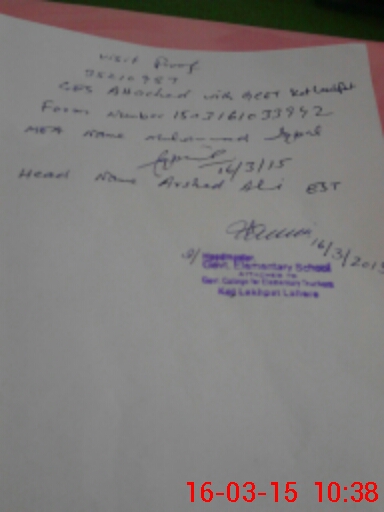 Visit Proof
35210989
GES Attached with GCET Kot Lakhpat
Form Number 1503161033942
MEA Name Muhammad Iqbal
16/3/15
Head Name Arshad Ali EST
16/3/2015
Headmaster
Govt. Elementary School
ATTACHED TO
Govt. College for Elementary Teachers
Kot Lakhpat Lahore
16-03-15 10:38